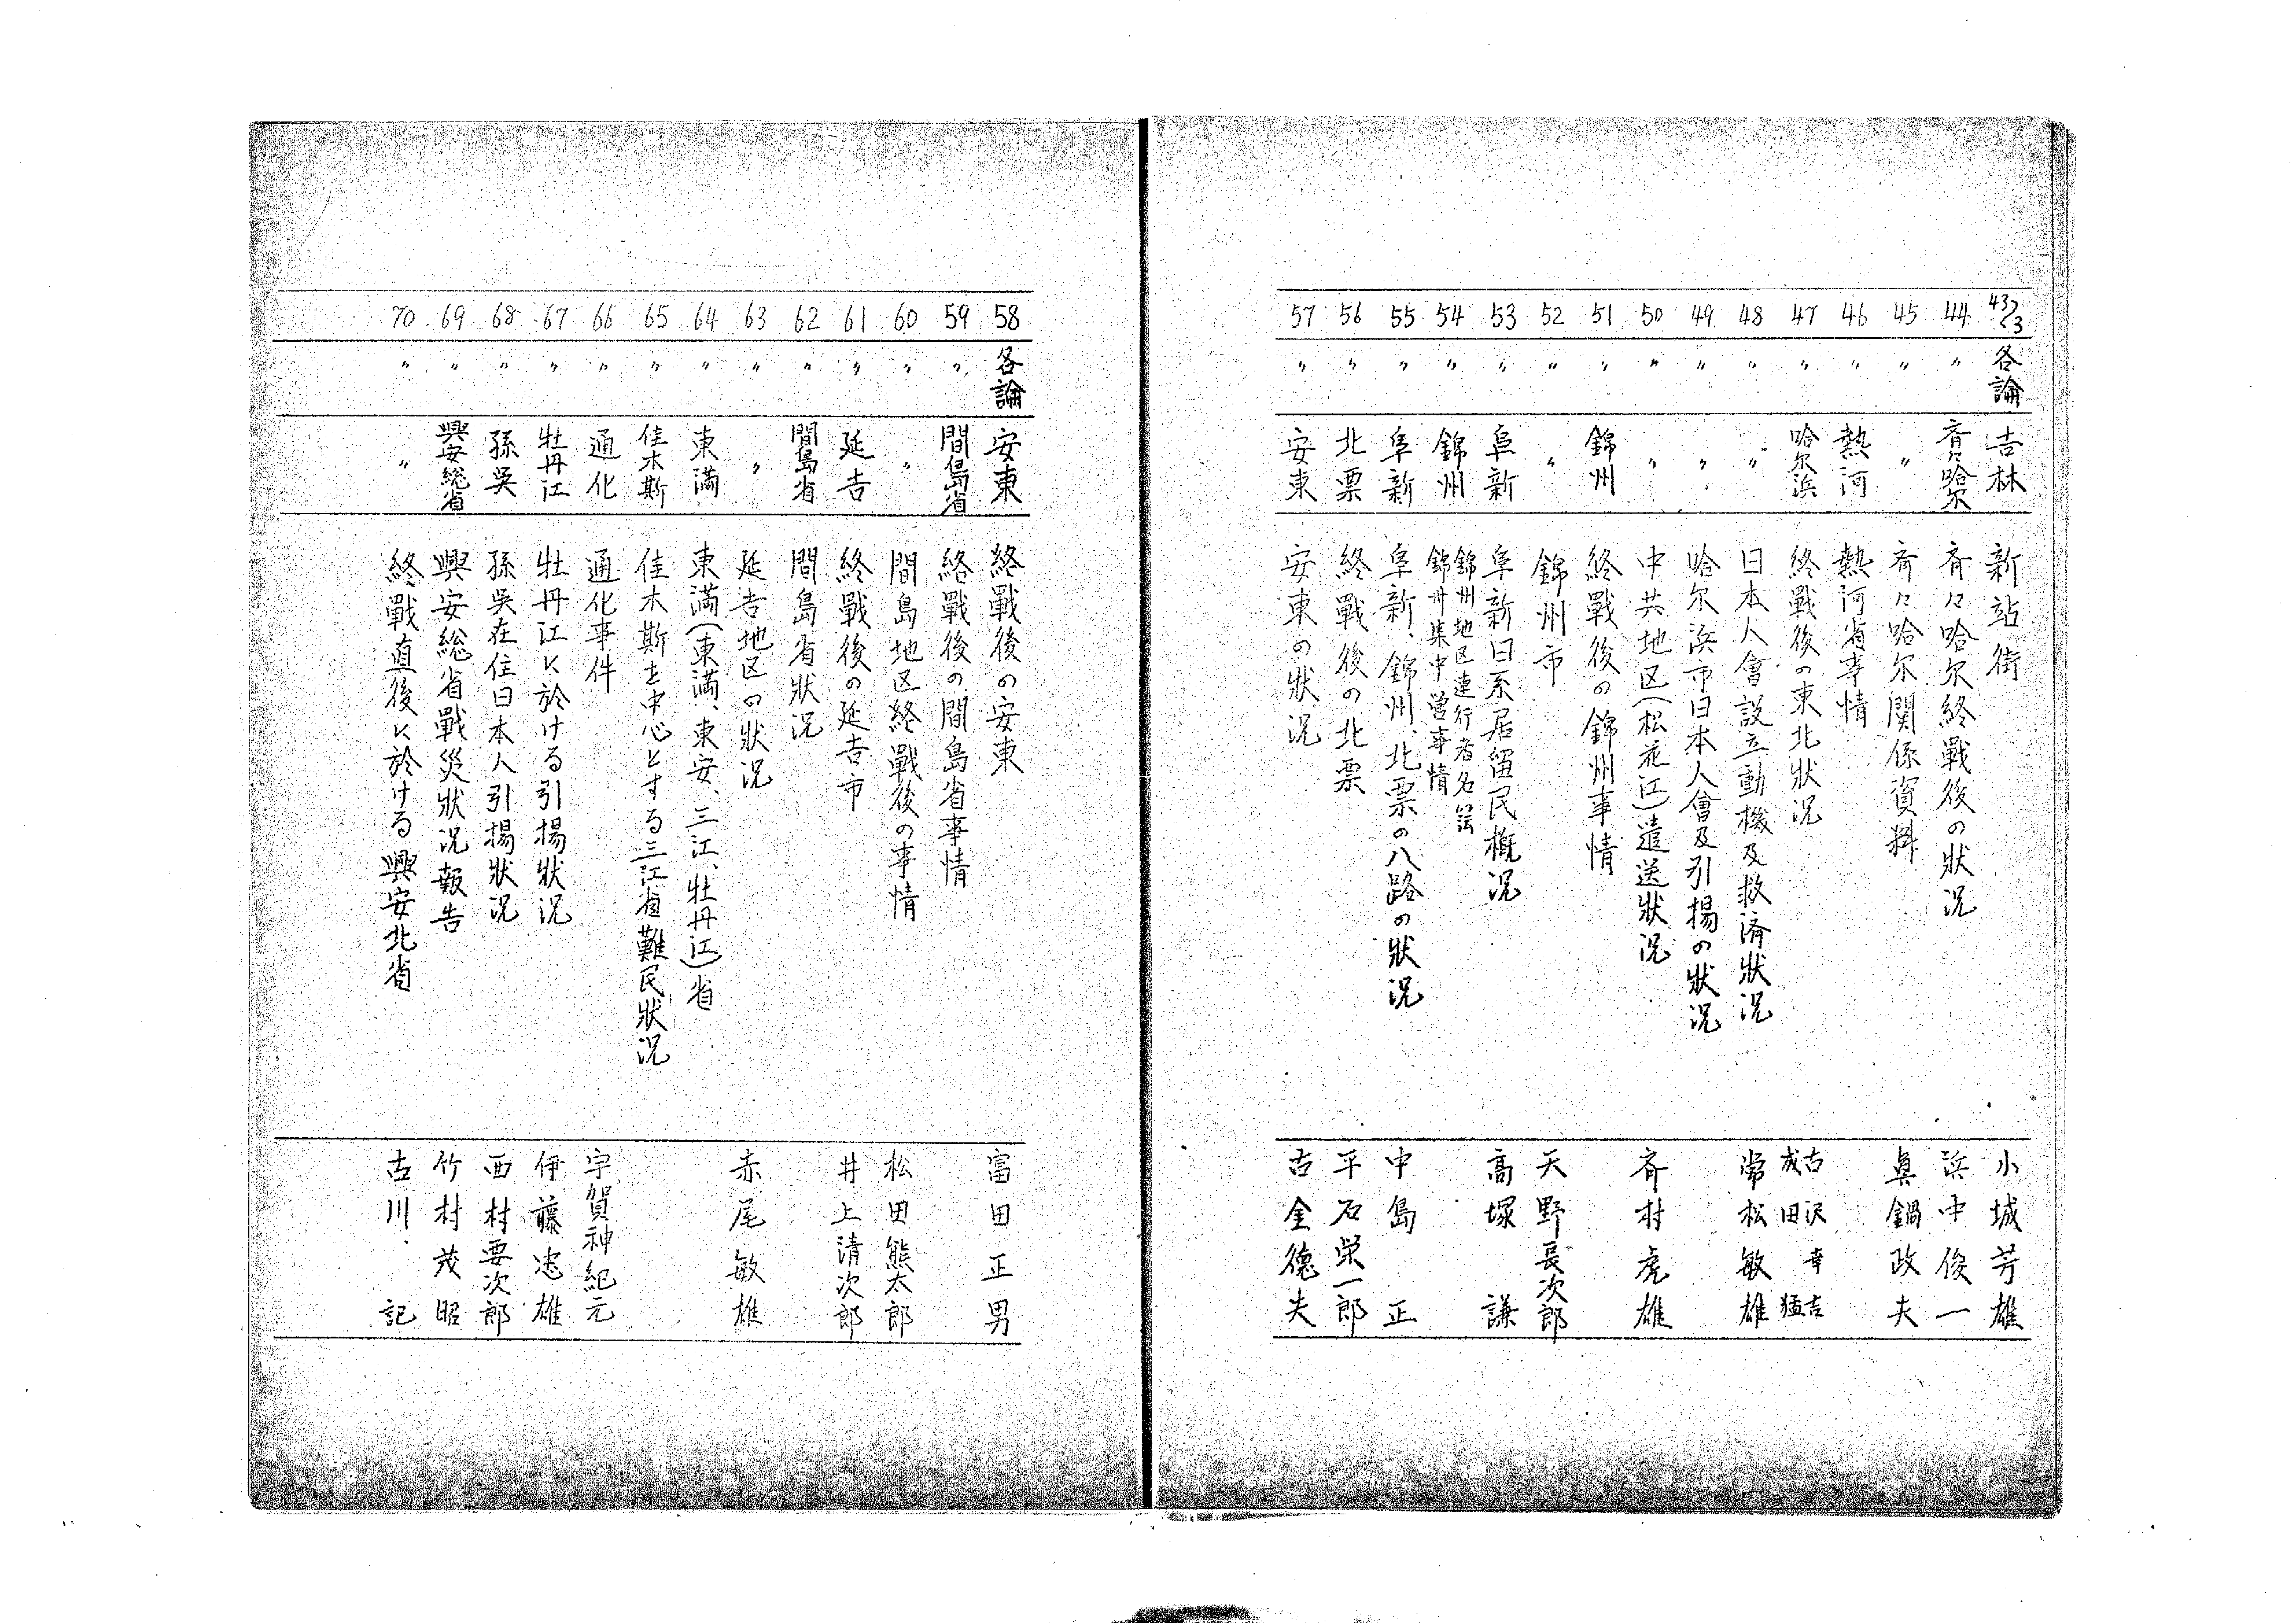 43ノ3 各論 吉林 新站街 小城芳雄
44 〃 斉々哈尔 斉々哈尔終戰後の狀況 浜中俊一
45 〃 〃 斉々哈尔関係資料 眞鍋政夫
46 〃 熱河 熱河省事情
47 〃 哈尔浜 終戰後の東北狀況 古沢幸吉 成田猛
48 〃 〃 日本人會設立動機及救済狀況 常松敏雄
49 〃 〃 哈尔浜市日本人會及引揚の狀況
50 〃 〃 中共地区(松花江)遣送狀況 斉村虎雄
51 〃 錦州 終戰後の錦州事情
52 〃 〃 錦州市 天野長次郎
53 〃 阜新 阜新日系居留民概況 高塚謙
54 〃 錦州 錦州地区連行者名簿 錦州集中営事情
55 〃 阜新 阜新、錦州、北票の八路の狀況 中島正
56 〃 北票 終戰後の北票 平石栄一郎
57 〃 安東 安東の狀況 古金德夫
58 各論 安東 終戰後の安東 富田正男
59 〃 間島省 終戰後の間島省事情
60 〃 〃 間島地区終戰後の事情 松田熊太郎
61 〃 延吉 終戰後の延吉市 井上清次郎
62 〃 間島省 間島省狀況
63 〃 〃 延吉地区の狀況 赤尾敏雄
64 〃 東満 東満(東満、東安、三江、牡丹江)省
65 〃 佳木斯 佳木斯を中心とする三江省難民狀況
66 〃 通化 通化事件 宇賀神紀元
67 〃 牡丹江 牡丹江に於ける引揚狀況 伊藤忠雄
68 〃 孫吳 孫吳在住日本人引揚狀況 西村要次郎
69 〃 興安総省 興安総省戰災狀況報告 竹村茂昭
70 〃 〃 終戰直後に於ける興安北省 古川記